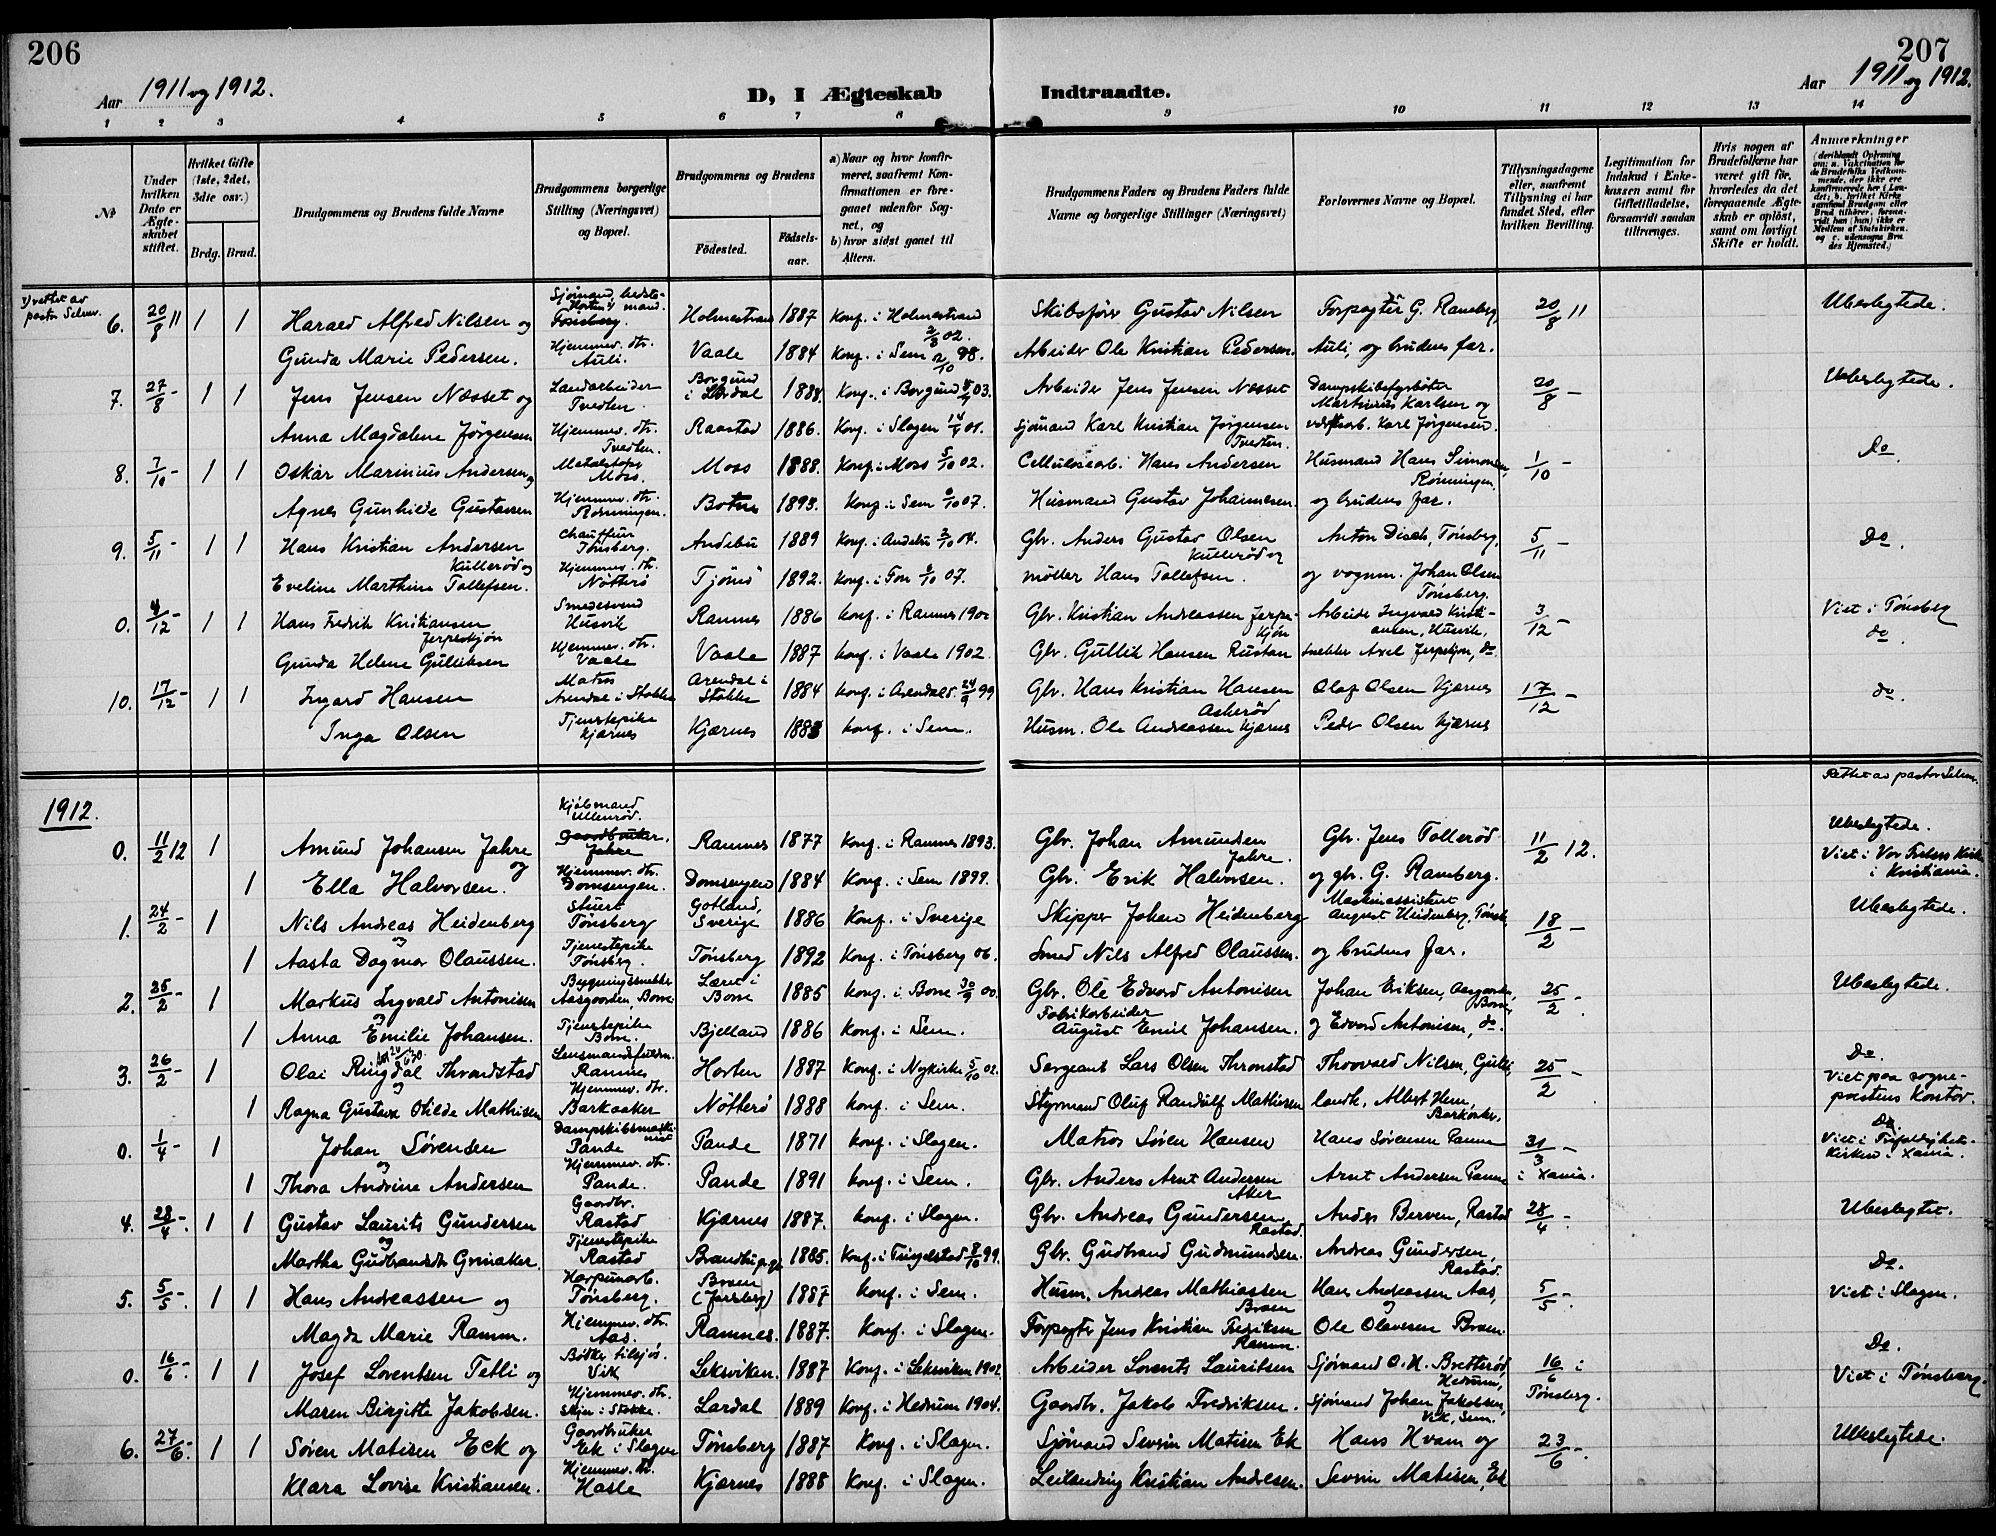 206
207
Aar 1911 og 1912.
D, I Ægteskab Indtraadte.
Aar 1911 og 1912.
1 2 3 4 5 6 7 8 9 10 11 12 13 14
No
Under hvilken Dato er Ægteskabet stiftet.
Hvilket Gifte (1ste, 2det, 3die osv.)
Brdg. Brud.
Brudgommens og Brudens fulde Navne
Brudgommens borgerlige Stilling (Næringsvei) og Bopæl.
Brudgommens og Brudens
Födested. Födselsaar.
a) Naar og hvor konfirmeret, saafremt Konfirmationen er foregaaet udenfor Sognet, og
b) hvor sidst gaaet til Alters.
Brudgommens Faders og Brudens Faders fulde Navne og borgerlige Stillinger (Næringsvei)
Forlovernes Navne og Bopæl.
Tillysningsdagene eller, saafremt Tillysning ei har fundet Sted, efter hvilken Bevilling.
Legitimation for Indskud i Enkekassen samt for Giftetilladelse, forsaavidt saadan tiltrænges.
Hvis nogen af Brudefolkene har været gift för, hvorledes da det foregaaende Ægteskab er oplöst, samt om lovligt Skifte er holdt.
Anmærkninger
6. 20/8 11 1 1 Harald Alfred Nilsen og Holmestrand 1887 Konf. i Holmestrand 2/3 02. Skibsfører Gustav Nilsen Forpagter G. Ramberg, 20/8 11 Ubeslegtede.
Gunda Marie Pedersen. Hjemmev. dtr. Auli. Vaale 1884 Konf. i Sem 2/10 98. Arbeider Ole Kristian Pedersen. Auli, og brudens far.
7. 27/8 - 1 1 Jens Jensen Næsset og Landarbeider Tvedten. Borgund i Lærdal 1888. Konf. i Borgund 03. Arbeider Jens Jensen Næsset Dampskibsfyrbøter Martinius Karlsen og 20/8 - Ubeslegtede.
Anna Magdalene Jørgensen Hjemmev. dtr. Tvedten. Raastad 1886. Konf. i Slagen 01. sjömand Karl Kristian Jørgensen Tvedten. Karl Jørgensen.
8. 7/10 - 1 1 Oskar Marinius Andersen og Moss. Moss 1888. Konf. i Moss 5/10 02. Hans Andersen Husmand Hans Simonsen, Rønningen, 1/10 - Do.
Agnes Gunhilde Gustavsen Hjemmev. dtr. Rønningen. Botne 1893. Konf. i Sem 07. Husmand Gustav Johannesen. og brudens far.
9. 5/11 - 1 1 Hans Kristian Andersen Kullerød og Chauffeur Tønsberg. Andebu 1889 Konf. i Andebu 04. Gbr. Anders Gustav Olsen Kullerød og Anton Disch, Tønsberg, 5/11 - Do.
Eveline Marthine Tollefsen. Hjemmev. dtr. Nøtterö Tjömö 1892. Konf. i 07. møller Hans Tollefsen. og vognm. Johan Olsen Tønsberg.
0. 4/12 - 1 1 Hans Fredrik Kristiansen Jerpeskjøn Smedesvend Husvik Ramnes 1886 Konf. i Ramnes Gbr. Kristian Andreassen Jerpekjøn Arbeider Ingvald Kristiansen, Husvik, 3/12 - Viet i Tønsberg do.
Gunda Helene Gulliksen Hjemmev. dtr. Vaale Vaale 1887 Konf. i Vaale 1902. Gbr. Gullik Hansen Rustan Snekker Axel Jerpekjøn, do
10. 17/12 - 1 1 Ingard Hansen Matros Arendal i Stokke Arendal i Stokke 1884 Konf. i Arendal 24/9 99 Gbr. Hans Kristian Hansen Askerød Olaf Olsen Kjærnes 17/12 - do.
Inga Olsen Tjenestepike Kjærnes Kjærnes Konf. i Sem. Husm. Ole Andreassen Kjærnes Peder Olsen Kjærnes
1912.
0. 11/2 12 1 Amund Johansen Jahre og Kjøbmand Ullenrød. Gaardbruker. Jahre Ramnes 1877 Konf. i Ramnes 1893. Gbr. Johan Amundsen Jahre. Gbr. Jens Tollerød 11/2 12. Ubeslegtede.
1 Ella Halvorsen. Hjemmev. dtr. Domsengen. Domsengen 1884 Konf. i Sem 1899. Gbr. Erik Halvorsen. og gbr. G. Ramberg. Viet i Vor Frelsers Kirke i Kristiania.
1. 24/2 - 1 Nils Andreas Heidenberg og Stuert Tønsberg Gotland, Sverige 1886 Konf. i Sverige Skipper Johan Heidenberg Maskinassistent August Heidenberg, 18/2 - Ubeslegtede.
1 Aasta Dagmar Olaussen. Tjenestepike Tønsberg. Tønsberg 1892 Konf. i Tønsberg 06. Smed Nils Alfred Olaussen. og brudens far.
2. 25/2 - 1 Markus Ingvald Antonisen og Bygningssnekker Aasgaarden Borre Borre 1885 Konf. i Borre 30/9 00. Gbr. Ole Edvard Antonisen Johan Eriksen, Borre, 25/2 - Ubeslegtede.
1 Anna Emilie Johansen. Tjenestepike Borre. Bjelland 1886 Konf. i Sem. Fabrikarbeider August Emil Johansen. og Edvard Antonisen, do.
3. 26/2 - 1 Olai Ringdal Throndstad og Lensmandsfuldm. Ramnes Horten 1887 Konf. i Nykirke 5/10 02. Sergeant Lars Olsen Thronstad Thorvald Nilsen, 25/2 - Do. Viet paa sogneprestens kontor.
1 Ragna Gustava Otilde Mathisen Hjemmev. dtr. Barkaaker Nøtterö 1888 Konf. i Sem. Styrmand Oluf Randulf Mathisen Albert Hem, Barkåker,
0. 1/4 - 1 Johan Sørensen og Dampskibsmaskinist Pande Pande 1871 Konf. i Slagen. Matros Søren Hansen Hans Sørensen 31/3 - Do. Viet i Trefoldighetskirken i Xania.
1 Thora Andrine Andersen Hjemmev. dtr. Pande. Pande 1891 Konf. i Sem. Gbr. Anders Arnt Andersen Aker Arnt Andersen i Xania.
4. 28/4 - 1 1 Gustav Laurits Gundersen og Gaardbr. Rastad Kjærnes 1887. Konf. i Slagen. Gbr. Andreas Gundersen, Rastad. Anders Berven, Rastad 28/4 - Ubeslegtet.
Martha Gudbrandsdtr Grinaker. Tjenestepike Rastad 1885. Konf. i Tingelstad 8/10 99. Gbr. Gudbrand Gudmundsen. Andreas Gundersen, Rastad.
5. 5/5 - 1 1 Hans Andreassen og Tønsberg. Broen (Jarlsberg) 1887 Konf. i Sem. Husm. Andreas Mathiassen Broen Hans Andreassen Aas, og 5/5 - Do. Viet i Slagen.
Magda Marie Ramm. Hjemmev. dtr. Aas. Ramnes. 1887. Konf. i Slagen. Forpagter Jens Kristian Fredriksen Ramm. Ole Olavesen Broen
0. 16/6 - 1 1 Josef Lorentsen Tetli og Bøtker tilsjøs. Vik Leksviken. 1887 Konf. i Leksviken 1902. Arbeider Lorents Lauritsen Sjømand O. H. Bretterød, Hedrum, 16/6 i Tønsberg. Do. Viet i Tønsberg.
Maren Birgitte Jakobsen. Hjemmev. dtr. i Stokke. Lardal 1889 Konf. i Hedrum 1904. Gaardbr. Jakob Fredriksen. Sjømand Johan Jakobsen, Vik, Sem.
6. 27/6 - 1 1 Søren Matisen Eck og Gaardbruker Ek i Slagen Tønsberg 1887 Konf. i Slagen. Sjømand Sevrin Matisen Ek Hans Hvam og 23/6 - Ubeslegtede.
Klara Lovise Kristiansen. Hjemmev. dtr. Hasle Kjærnes 1888 Konf. i Slagen. Leilending Kristian Andresen. Sevrin Matisen, Ek